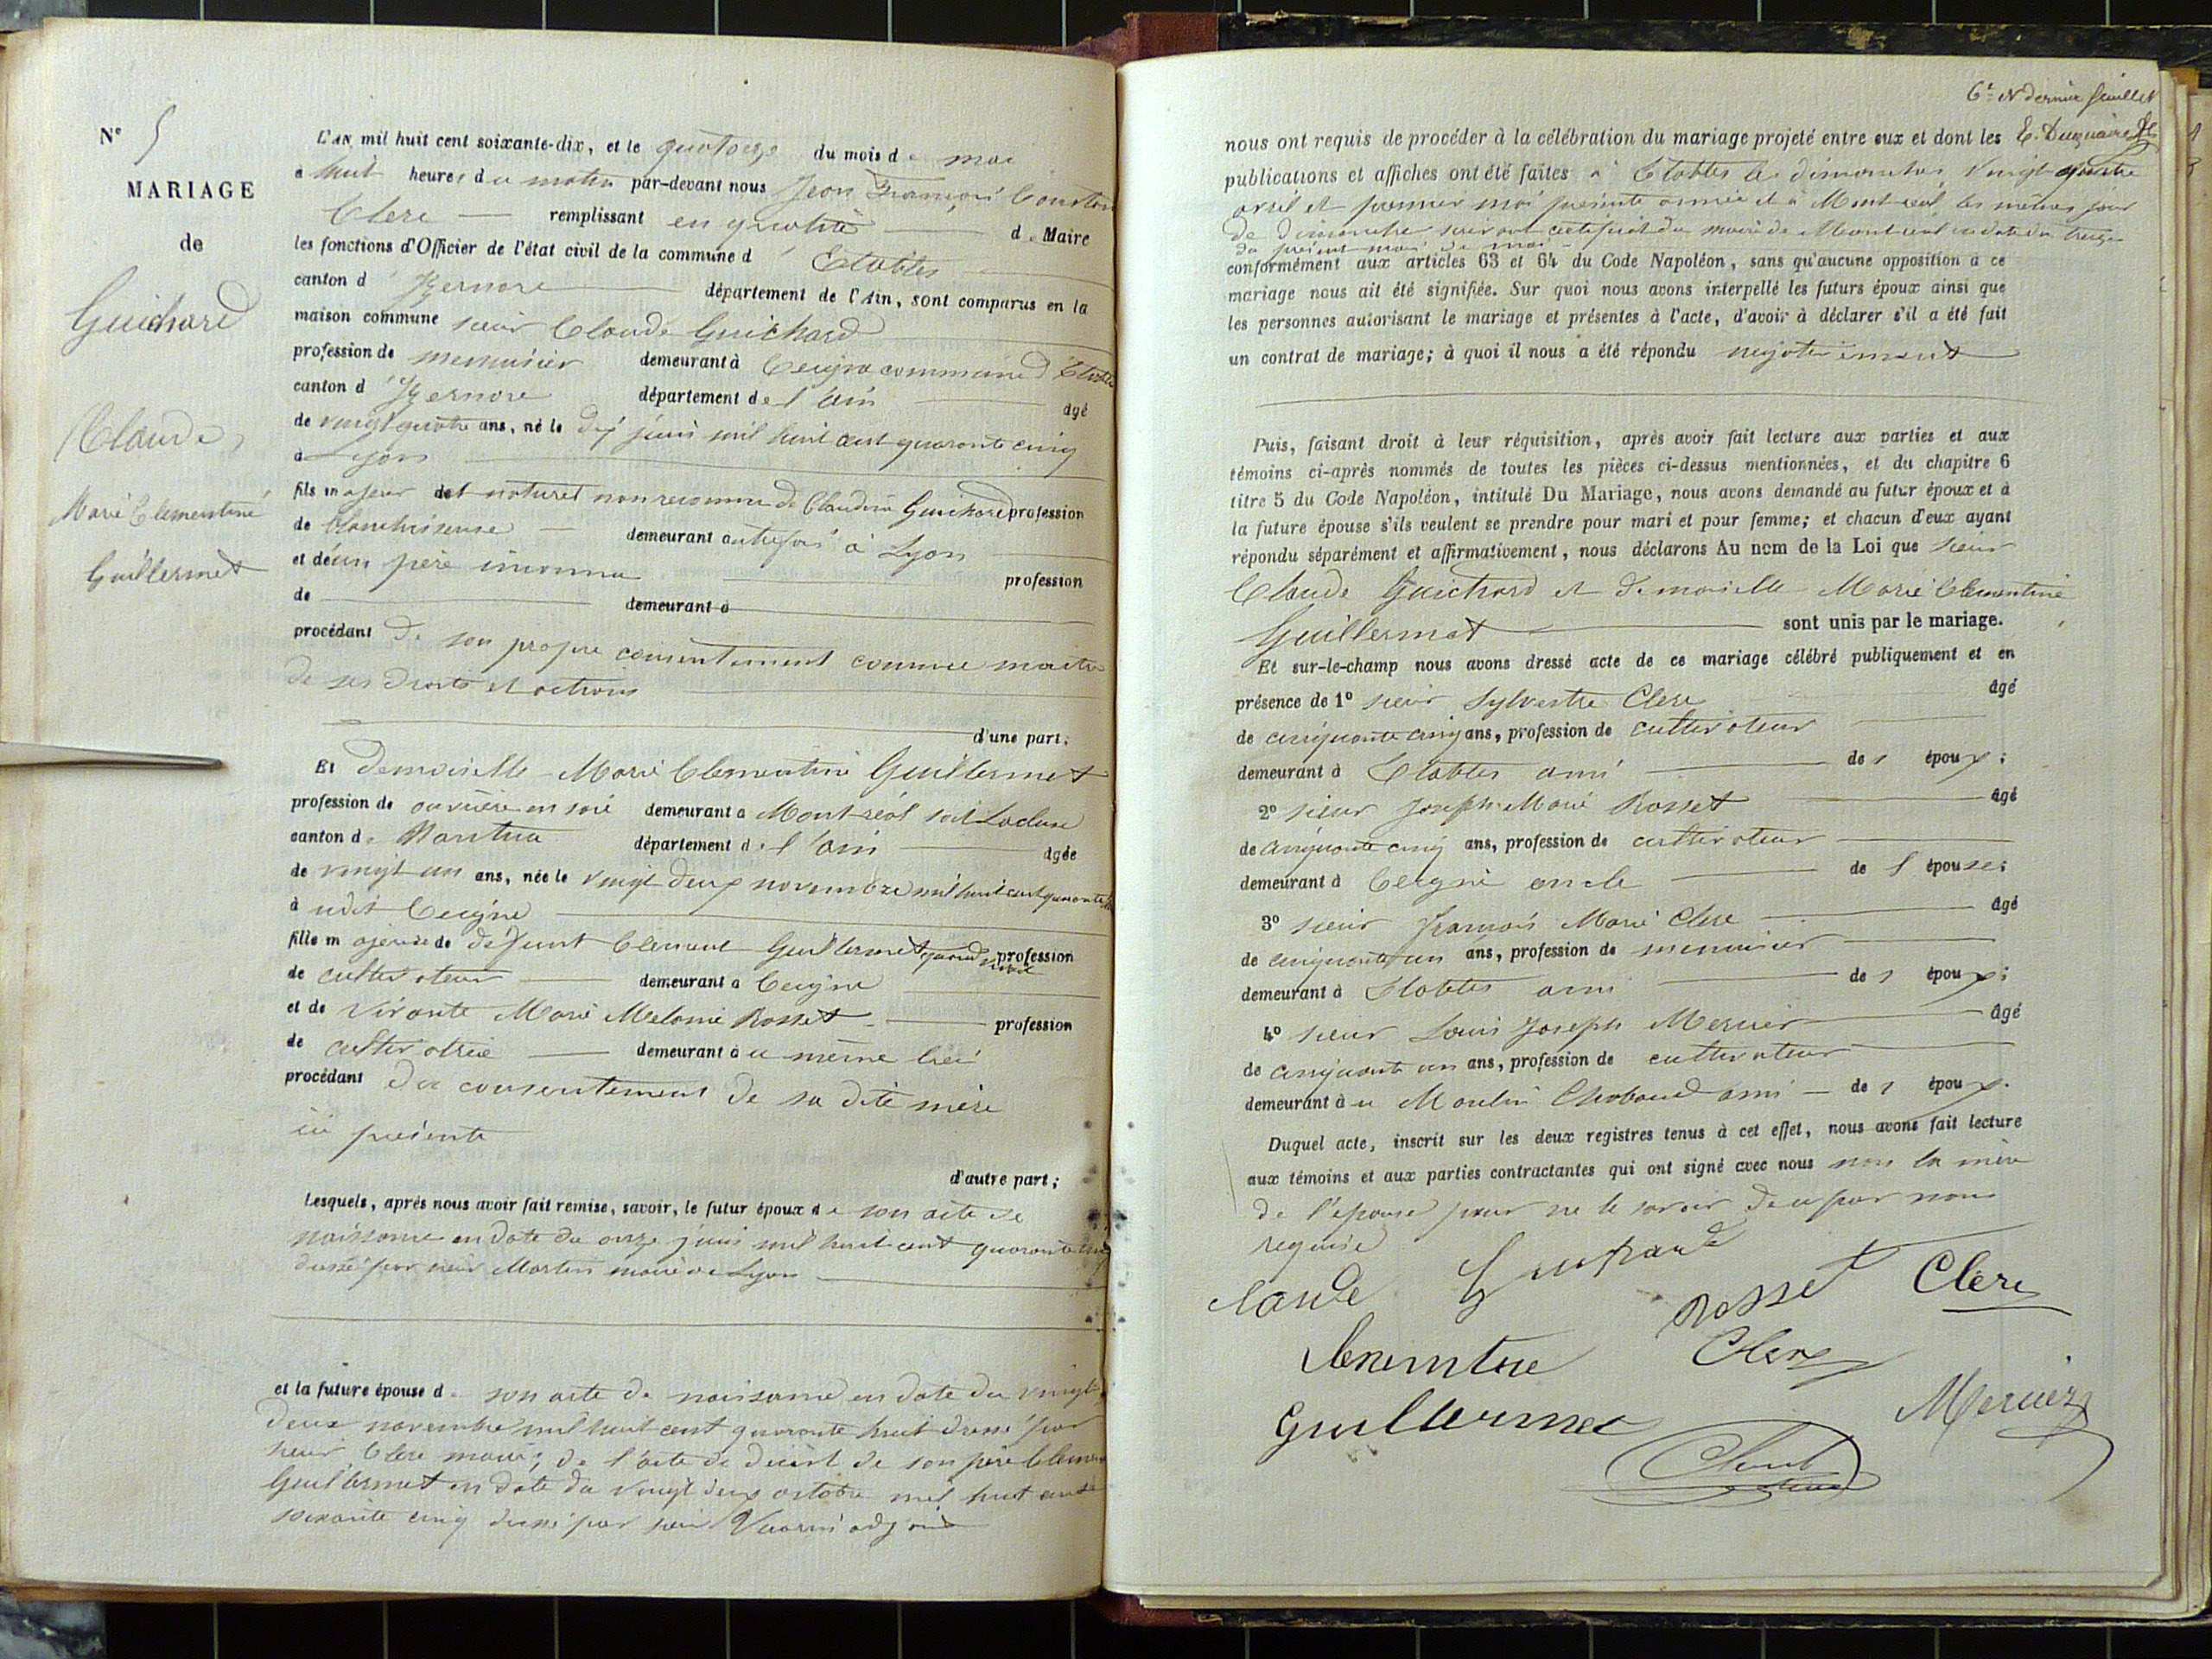 N° 5
MARIAGE
de
Guichard
Claude,
Marie Clementine
Guillermet
L'AN mil huit cent soixante-dix, et le quatorze du mois de mai
à huit heures du matin par-devant nous Jean François
Clerc remplissant en qualité de Maire
les fonctions d'Officier de l'état civil de la commune d'Etables
canton d'Izernore département de l'Ain, sont comparus en la
maison commune sieur Claude Guichard
profession de menuisier demeurant à Ceigne commune d'Etables
canton d'Izernore département de l'ain âgé
de vingt quatre ans, né le dix juin mil huit cent quarante cinq
à Lyon
fils majeur et naturel non reconnu de Claudine Guichard profession
de blanchisseuse demeurant autrefois à Lyon
et d'un père inconnu profession
de demeurant à
procédant de son propre consentement comme maitre
de ses droits et actions
d'une part;
Et demoiselle Marie Clementine Guillermet
profession de ouvrière en soie demeurant à Montréal soit Lacluse
canton de Nantua département de l'ain âgée
de vingt un ans, née le vingt deux novembre mil huit cent quarante huit
à udit Ceigne
fille majeure de défunt Clement Guillermet quand vivait profession
de cultivateur demeurant à Ceigne
et de vivante Marie Melanie Rosset profession
de cultivatrice demeurant à u même lieu
procédant du consentement de sa dite mère
ici présente
d'autre part;
Lesquels, après nous avoir fait remise, savoir, le futur époux de son acte de
naissance en date du onze juin mil huit cent quarante cinq
dressé par sieur Martin maire de Lyon
et la future épouse de son acte de naissance en date du vingt
deux novembre mil huit cent quarante huit dressé par
sieur Clerc maire, de l'acte de décès de son père Clement
Guillermet en date du vingt deux octobre mil huit cent
soixante cinq dressé par sieur adjoint
6e et dernier feuillet
nous ont requis de procéder à la célébration du mariage projeté entre eux et dont les
publications et affiches ont été faites à Etables les dimanches vingt quatre
avril et premier mai présente année et à Montréal les mêmes jours
de dimanche suivant certificat du maire de Montréal en date du treize
du présent mois de mai
conformément aux articles 63 et 64 du Code Napoléon, sans qu'aucune opposition à ce
mariage nous ait été signifiée. Sur quoi nous avons interpellé les futurs époux ainsi que
les personnes autorisant le mariage et présentes à l'acte, d'avoir à déclarer s'il a été fait
un contrat de mariage; à quoi il nous a été répondu négativement
Puis, faisant droit à leur réquisition, après avoir fait lecture aux parties et aux
témoins ci-après nommés de toutes les pièces ci-dessus mentionnées, et du chapitre 6
titre 5 du Code Napoléon, intitulé Du Mariage, nous avons demandé au futur époux et à
la future épouse s'ils veulent se prendre pour mari et pour femme; et chacun d'eux ayant
répondu séparément et affirmativement, nous déclarons Au nom de la Loi que sieur
Claude Guichard et demoiselle Marie Clementine
Guillermet sont unis par le mariage.
Et sur-le-champ nous avons dressé acte de ce mariage célébré publiquement et en
présence de 1° sieur Sylvestre Clerc âgé
de cinquante cinq ans, profession de cultivateur
demeurant à Etables ami de l'époux;
2° sieur Joseph Marie Rosset âgé
de cinquante cinq ans, profession de cultivateur
demeurant à Ceigne oncle de l'épouse;
3° sieur François Marie Clerc âgé
de cinquante un ans, profession de menuisier
demeurant à Etables ami de l'époux;
4° sieur Louis Joseph Mercier âgé
de cinquante un ans, profession de cultivateur
demeurant à u Moulin Chabaud ami de l'époux.
Duquel acte, inscrit sur les deux registres tenus à cet effet, nous avons fait lecture
aux témoins et aux parties contractantes qui ont signé avec nous non la mère
de l'épouse pour ne le savoir de ce par nous
requise
Claude
Rosset Clerc
Clerc
Guillermet
Mercier